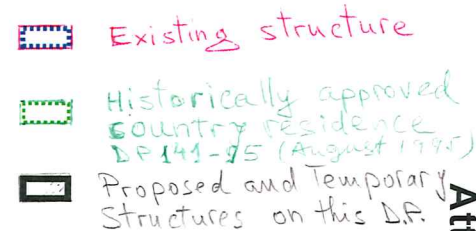 Existing structure
Historically approved
country residence
DP 141-95 (August 1995)
Proposed and Temporary
Structures on this D.P.